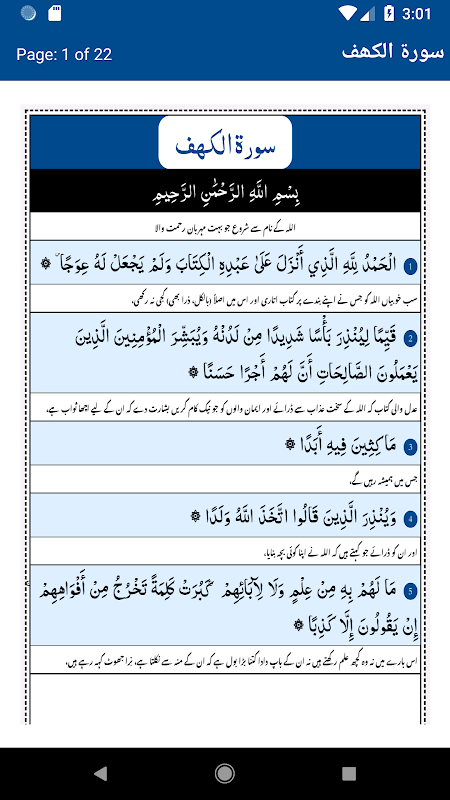 3:01
Page: 1 of 22
سورة الكهف
سورة الكهف
بِسْمِ اللَّهِ الرَّحْمَٰنِ الرَّحِيمِ
اللہ کے نام سے شروع جو بہت مہربان رحمت والا
1 الْحَمْدُ لِلَّهِ الَّذِي أَنْزَلَ عَلَىٰ عَبْدِهِ الْكِتَابَ وَلَمْ يَجْعَلْ لَهُ عِوَجًا ۜ ۞
سب خوبیاں اللہ کو جس نے اپنے بندے پر کتاب اتاری اور اس میں اصلاً (بالکل، ذرا بھی) کجی نہ رکھی،
2 قَيِّمًا لِيُنْذِرَ بَأْسًا شَدِيدًا مِنْ لَدُنْهُ وَيُبَشِّرَ الْمُؤْمِنِينَ الَّذِينَ
يَعْمَلُونَ الصَّالِحَاتِ أَنَّ لَهُمْ أَجْرًا حَسَنًا ۞
عدل والی کتاب کہ اللہ کے سخت عذاب سے ڈرائے اور ایمان والوں کو جو نیک کام کریں بشارت دے کہ ان کے لیے اچھا ثواب ہے،
3 مَاكِثِينَ فِيهِ أَبَدًا ۞
جس میں ہمیشہ رہیں گے،
4 وَيُنْذِرَ الَّذِينَ قَالُوا اتَّخَذَ اللَّهُ وَلَدًا ۞
اور ان کو ڈرائے جو کہتے ہیں کہ اللہ نے اپنا کوئی بچہ بنایا،
5 مَا لَهُمْ بِهِ مِنْ عِلْمٍ وَلَا لِآبَائِهِمْ ۚ كَبُرَتْ كَلِمَةً تَخْرُجُ مِنْ أَفْوَاهِهِمْ ۚ
إِنْ يَقُولُونَ إِلَّا كَذِبًا ۞
اس بارے میں نہ وہ کچھ علم رکھتے ہیں نہ ان کے باپ دادا کتنا بڑا بول ہے کہ ان کے منہ سے نکلتا ہے، نِرا جھوٹ کہہ رہے ہیں،